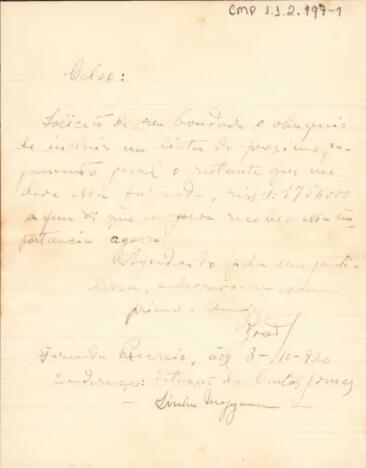 CMP 1.1.2.197-1
Celso:
Solicito de sua bondade o obsequio
de incluir na lista do proximo pa-
gamento geral o restante que me
deve essa fazenda, 1:175$000
a fim de que eu possa receber essa im-
portancia agora.
Agradecido pela sua genti-
leza, subscrevo-me seu
primo e amigo
Fazenda Recreio, 3-10-920
Endereço: Estação de Carlos Gomes
- Linha Mogyana -